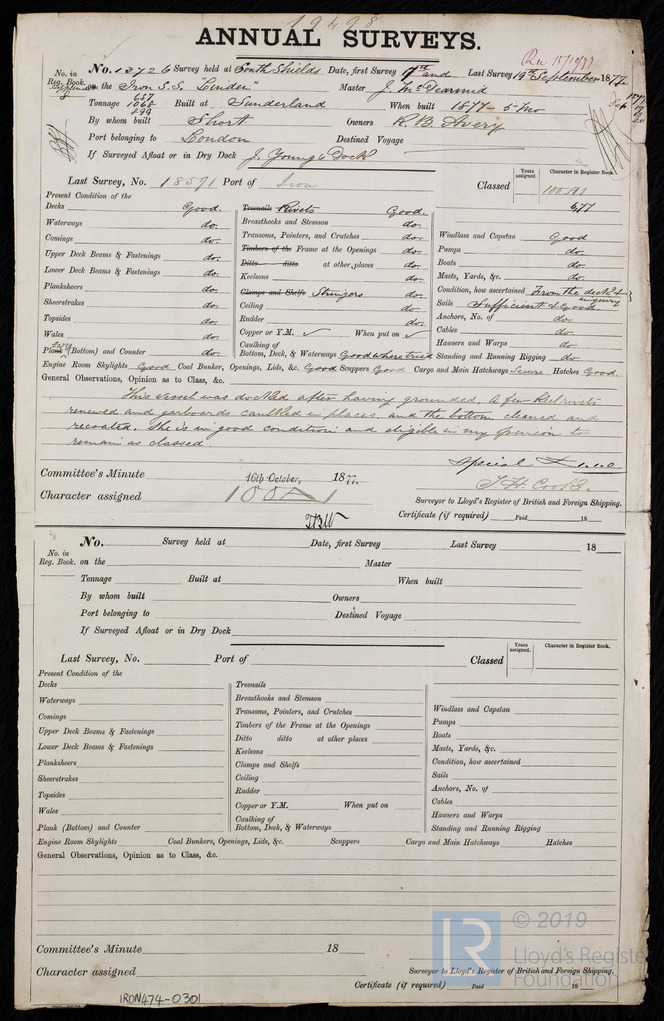 19498
ANNUAL SURVEYS.
Rec 15/10/77
No. in Reg. Book. No. 13726 Survey held at South Shields Date, first Survey 17th and Last Survey 19th September 1877
on the Iron S.S. "Linden" Master J. McDearmid
Tonnage 657 1068 899 Built at Sunderland When built 1877 - 5 mo
By whom built Short Owners R. B. Avery
Port belonging to London Destined Voyage
If Surveyed Afloat or in Dry Dock J. Young's Dock
Last Survey, No. 18591 Port of Iron Classed Years assigned. Character in Register Book. 100A1
6,77
Present Condition of the
Decks Good. Treenails Rivets Good.
Waterways do. Breasthooks and Stemson do. Windlass and Capstan Good
Comings do. Transoms, Pointers, and Crutches do. Pumps do.
Upper Deck Beams & Fastenings do. Timbers of the Frame at the Openings do. Boats do.
Lower Deck Beams & Fastenings do. Ditto ditto at other places do. Masts, Yards, &c. do.
Planksheers do. Keelsons do. Condition, how ascertained From the deck & inquiry
Sheerstrakes do. Clamps and Shelfs Stringers do. Sails Sufficient & Good
Topsides do. Ceiling do. Anchors, No. of do.
Wales do. Rudder do. Cables do.
Copper or Y.M. ✓ When put on ✓ Hawsers and Warps do.
Plank (Bottom) and Counter do. Caulking of Bottom, Deck, & Waterways Good where tried Standing and Running Rigging do.
Engine Room Skylights Good Coal Bunker, Openings, Lids, &c. Good Scuppers Good Cargo and Main Hatchways Secure Hatches Good.
General Observations, Opinion as to Class, &c.
This vessel was docked after having grounded. A few keel rivets
renewed and garboards caulked in places, and the bottom cleaned and
recoated. She is in good condition and eligible in my opinion to
remain as classed.
Committee's Minute 16th October, 1877.
T. H. Cooke.
Character assigned 100A1 Surveyor to Lloyd's Register of British and Foreign Shipping.
Certificate (if required) Paid 18
No. in Reg. Book. No. Survey held at Date, first Survey Last Survey 18
on the Master
Tonnage Built at When built
By whom built Owners
Port belonging to Destined Voyage
If Surveyed Afloat or in Dry Dock
Last Survey, No. Port of Classed Years assigned. Character in Register Book.
Present Condition of the
Decks Treenails
Waterways Breasthooks and Stemson
Comings Transoms, Pointers, and Crutches Windlass and Capstan
Upper Deck Beams & Fastenings Timbers of the Frame at the Openings Pumps
Lower Deck Beams & Fastenings Ditto ditto at other places Boats
Planksheers Keelsons Masts, Yards, &c.
Sheerstrakes Clamps and Shelfs Condition, how ascertained
Topsides Ceiling Sails
Wales Rudder Anchors, No. of
Copper or Y.M. When put on Cables
Plank (Bottom) and Counter Caulking of Bottom, Deck, & Waterways Hawsers and Warps
Standing and Running Rigging
Engine Room Skylights Coal Bunkers, Openings, Lids, &c. Scuppers Cargo and Main Hatchways Hatches
General Observations, Opinion as to Class, &c.
Committee's Minute 18
Character assigned Surveyor to Lloyd's Register of British and Foreign Shipping.
Certificate (if required) Paid 18
IRON474-0301
LR © 2019
Lloyd's Register
Foundation